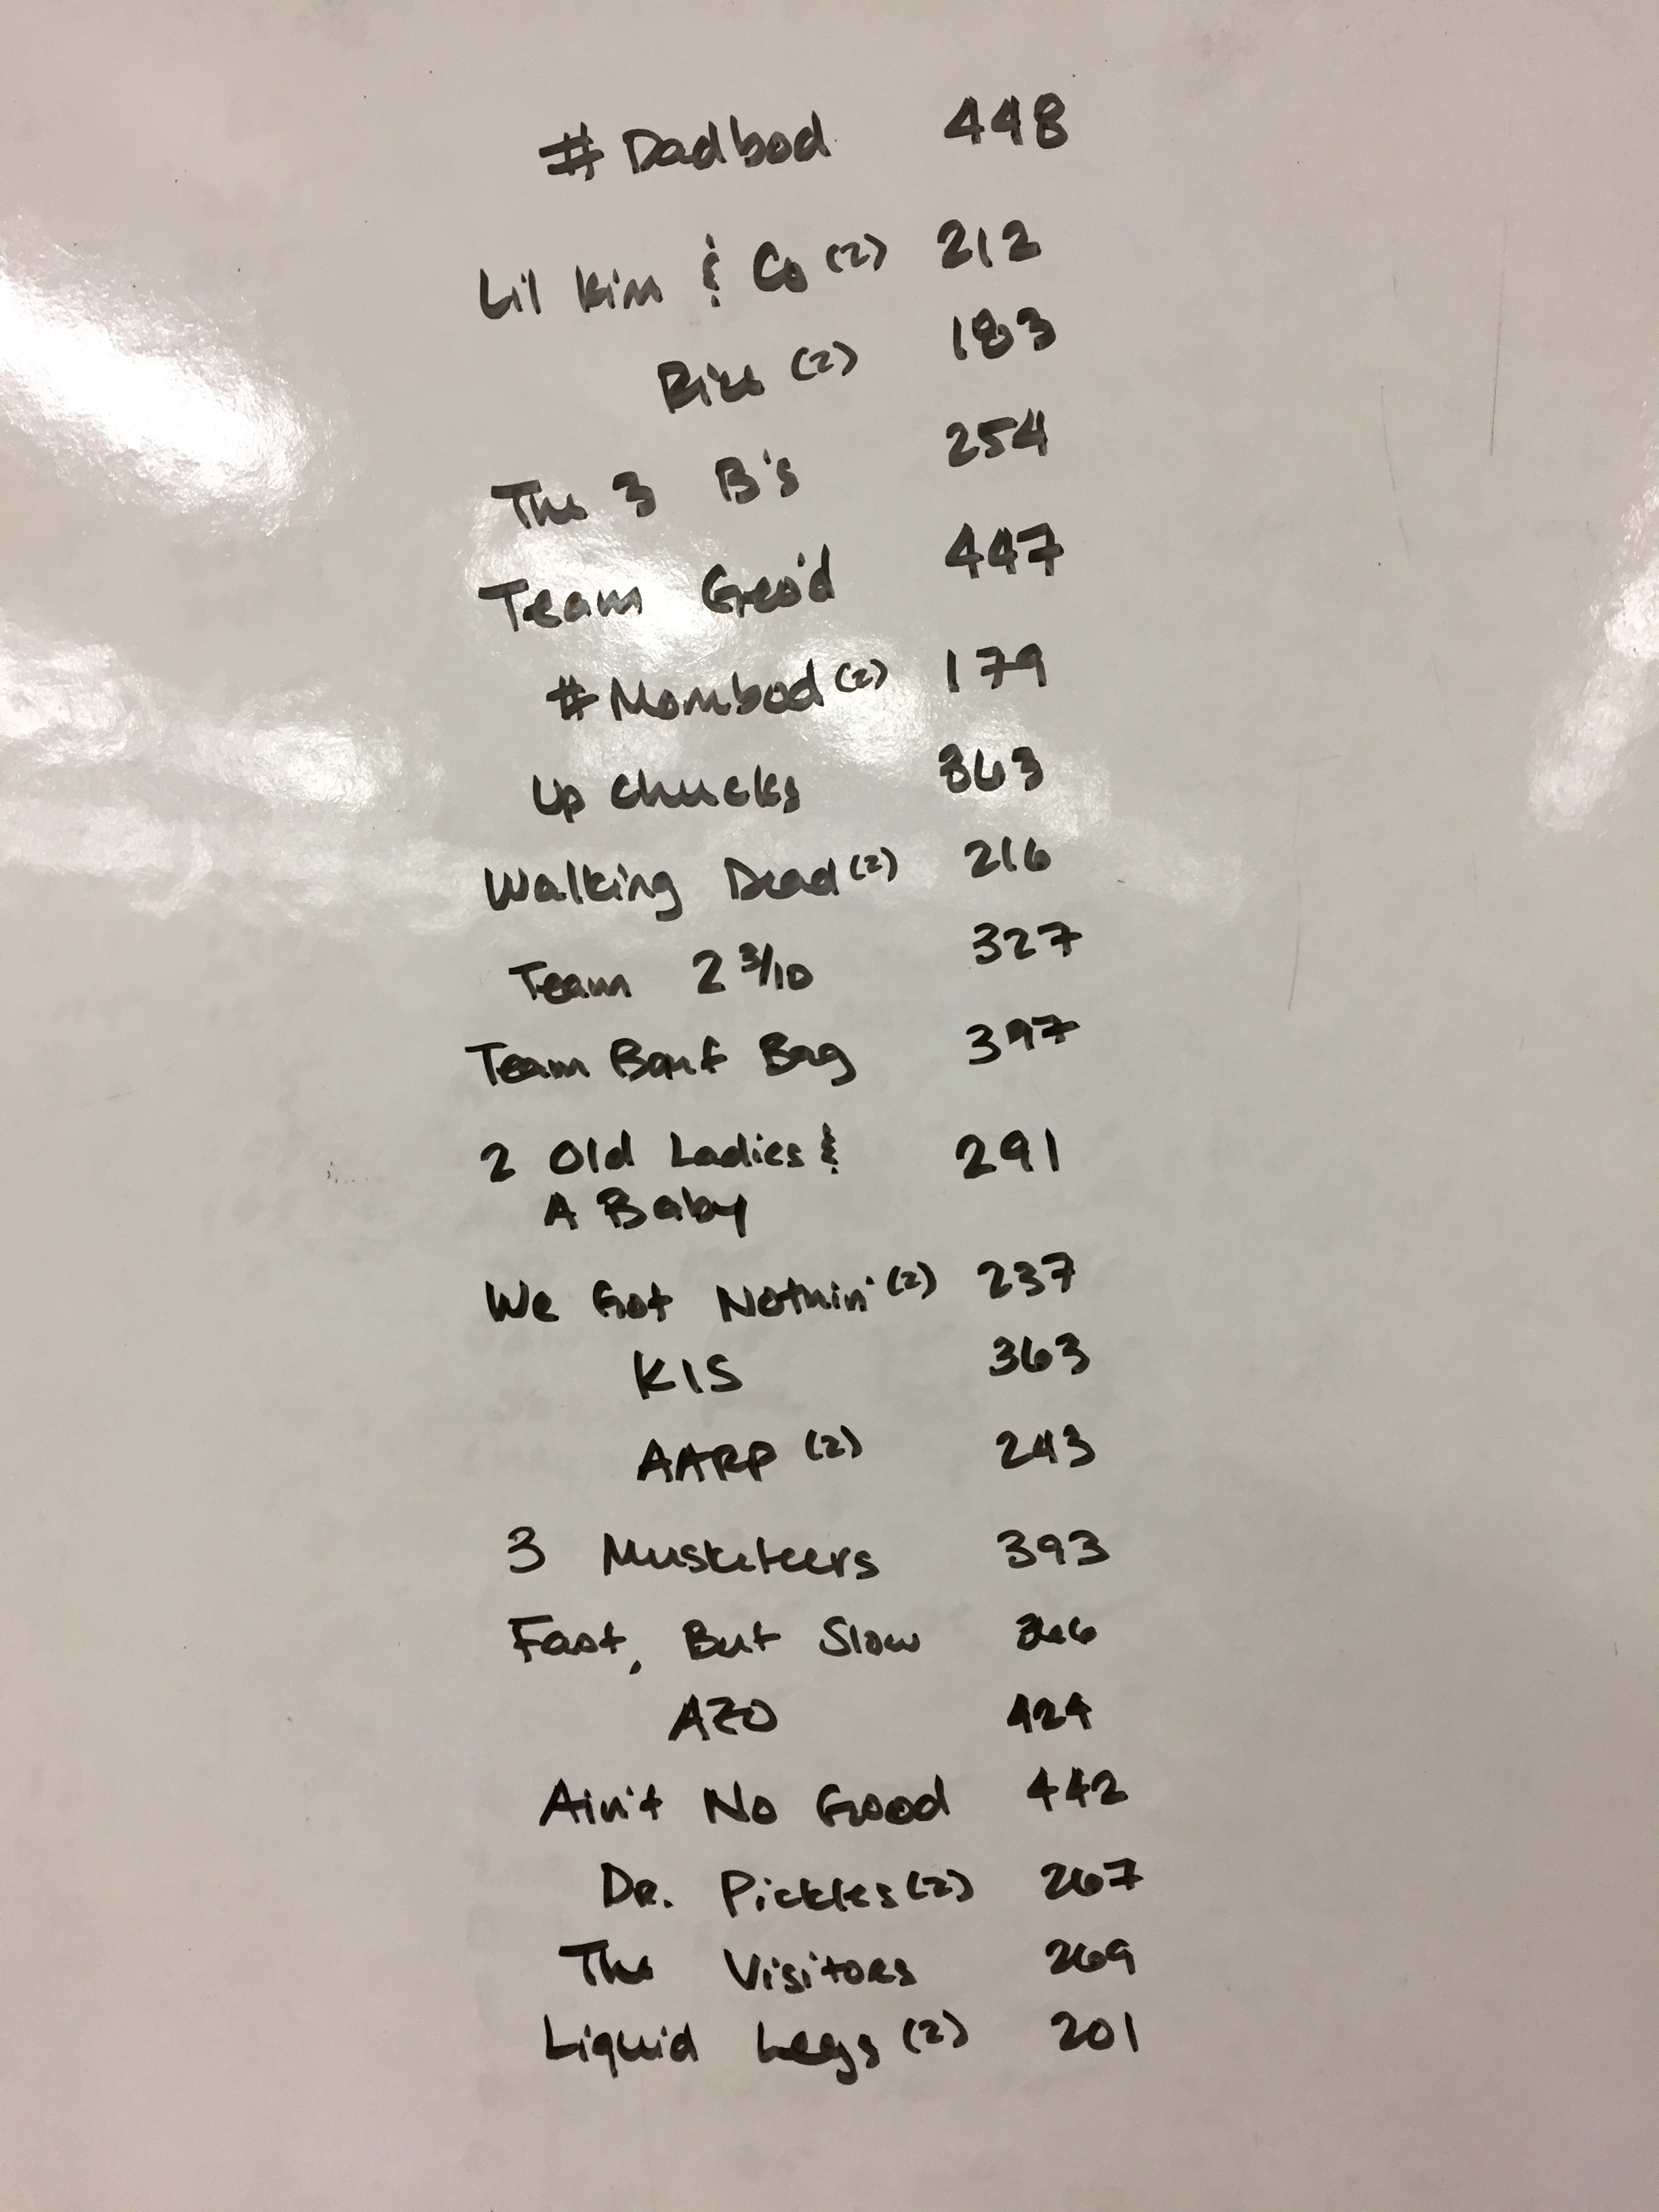 #Dadbod 448
Lil Kim & Co (2) 212
(2) 183
The 3 B's 254
Team Geo'd 447
#Mombod (2) 179
Up Chucks 363
Walking Dead (2) 216
Team 2 3/10 327
Team Barf Bag 397
2 Old Ladies & 291
A Baby
We Got Nothin' (2) 237
KIS 363
AARP (2) 243
3 Musketeers 393
Fast, But Slow
AZO 424
Ain't No Good 442
DR. Pickles (2) 267
The Visitors 269
Liquid Legs (2) 201